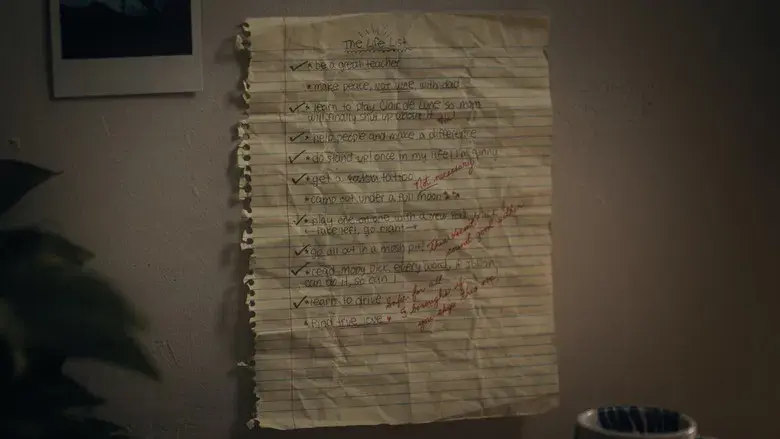 The Life List
✓ * be a great teacher
* make peace, not war, with dad!
✓ * learn to play Clair de Lune so mom
will finally shut up about it
✓ * help people and make a difference
✓ * do stand up once in my life! I'm funny
✓ * get a tattoo Not necessary!
* camp out under a full moon
✓ * play one on one with a new
—fake left, go right→
✓ * go all out in a mosh pit!
✓ * read Moby Dick, every word,
can do it, so can I
✓ * learn to drive Safer for all
5 boroughs if
you skip this one
* find true love